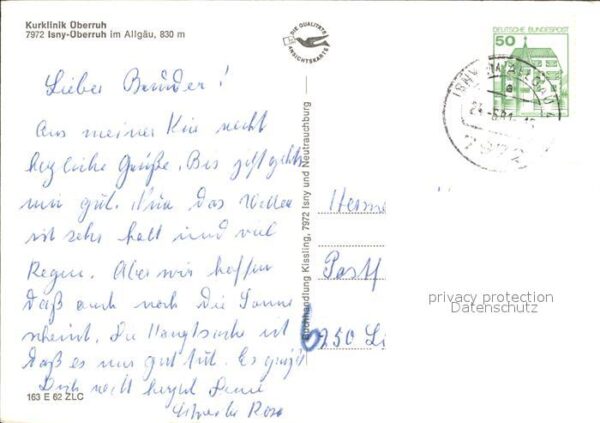 Kurklinik Überruh
7972 Isny-Überruh im Allgäu, 830 m
DIE QUALITÄTS
ANSICHTSKARTE
DEUTSCHE BUNDESPOST
50
ISNY IM ALLGÄU
7972
Lieber Bruder!
Aus meiner Kur recht
herzliche Grüße. Bis jetzt geht
mir gut. Nur das Wetter
ist sehr kalt und viel
Regen. Aber wir hoffen
daß auch noch die Sonne
scheint. Die Hauptsache ist
daß es mir gut tut. Es grüßt
Dich recht herzl. Deine
Schwester Rosa
Buchhandlung Kissling, 7972 Isny und Neutrauchburg
Herm
Postf
6250 Li
privacy protection
Datenschutz
163 E 62 ZLC